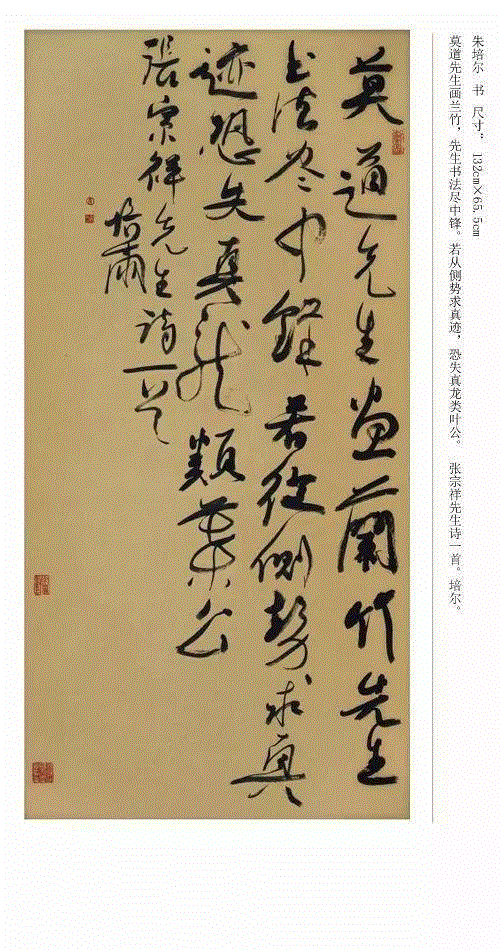 朱培尔　书　尺寸：132cm×65.5cm
莫道先生画兰竹，先生书法尽中锋。若从侧势求真迹，恐失真龙类叶公。　张宗祥先生诗一首。培尔。
莫道先生画兰竹先生
书法尽中锋若从侧势求真
迹恐失真龙類葉公
張宗祥先生詩一首
培爾